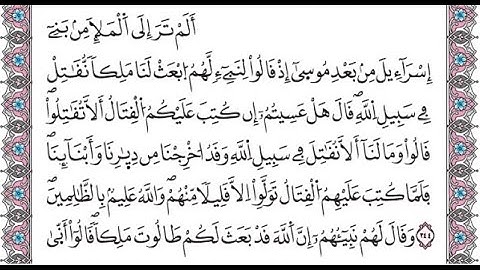 أَلَمْ تَرَ إِلَى اَ۬لْمَلَإِ مِنۢ بَنِےٓ
إِسْرَآءِيلَ مِنۢ بَعْدِ مُوسَىٰٓ إِذْ قَالُواْ لِنَبِےٓءٍ لَّهُمُ اُ۪بْعَثْ لَنَا مَلِكاٗ نُّقَٰتِلْ
فِے سَبِيلِ اِ۬للَّهِۖ قَالَ هَلْ عَسِيتُمُۥٓ إِن كُتِبَ عَلَيْكُمُ اُ۬لْقِتَالُ أَلَّا تُقَٰتِلُواْۖ
قَالُواْ وَمَا لَنَآ أَلَّا نُقَٰتِلَ فِے سَبِيلِ اِ۬للَّهِ وَقَدُ ا۟خْرِجْنَا مِن دِيٰ۪رِنَا وَأَبْنَآئِنَاۖ
فَلَمَّا كُتِبَ عَلَيْهِمُ اُ۬لْقِتَالُ تَوَلَّوِاْ اِلَّا قَلِيلاٗ مِّنْهُمْۖ وَاللَّهُ عَلِيمُۢ بِالظَّٰلِمِينَۖ
٢٤٤ وَقَالَ لَهُمْ نَبِيٓـُٔهُمُۥٓ إِنَّ اَ۬للَّهَ قَدْ بَعَثَ لَكُمْ طَالُوتَ مَلِكاٗۖ قَالُوٓاْ أَنّ۪ىٰ